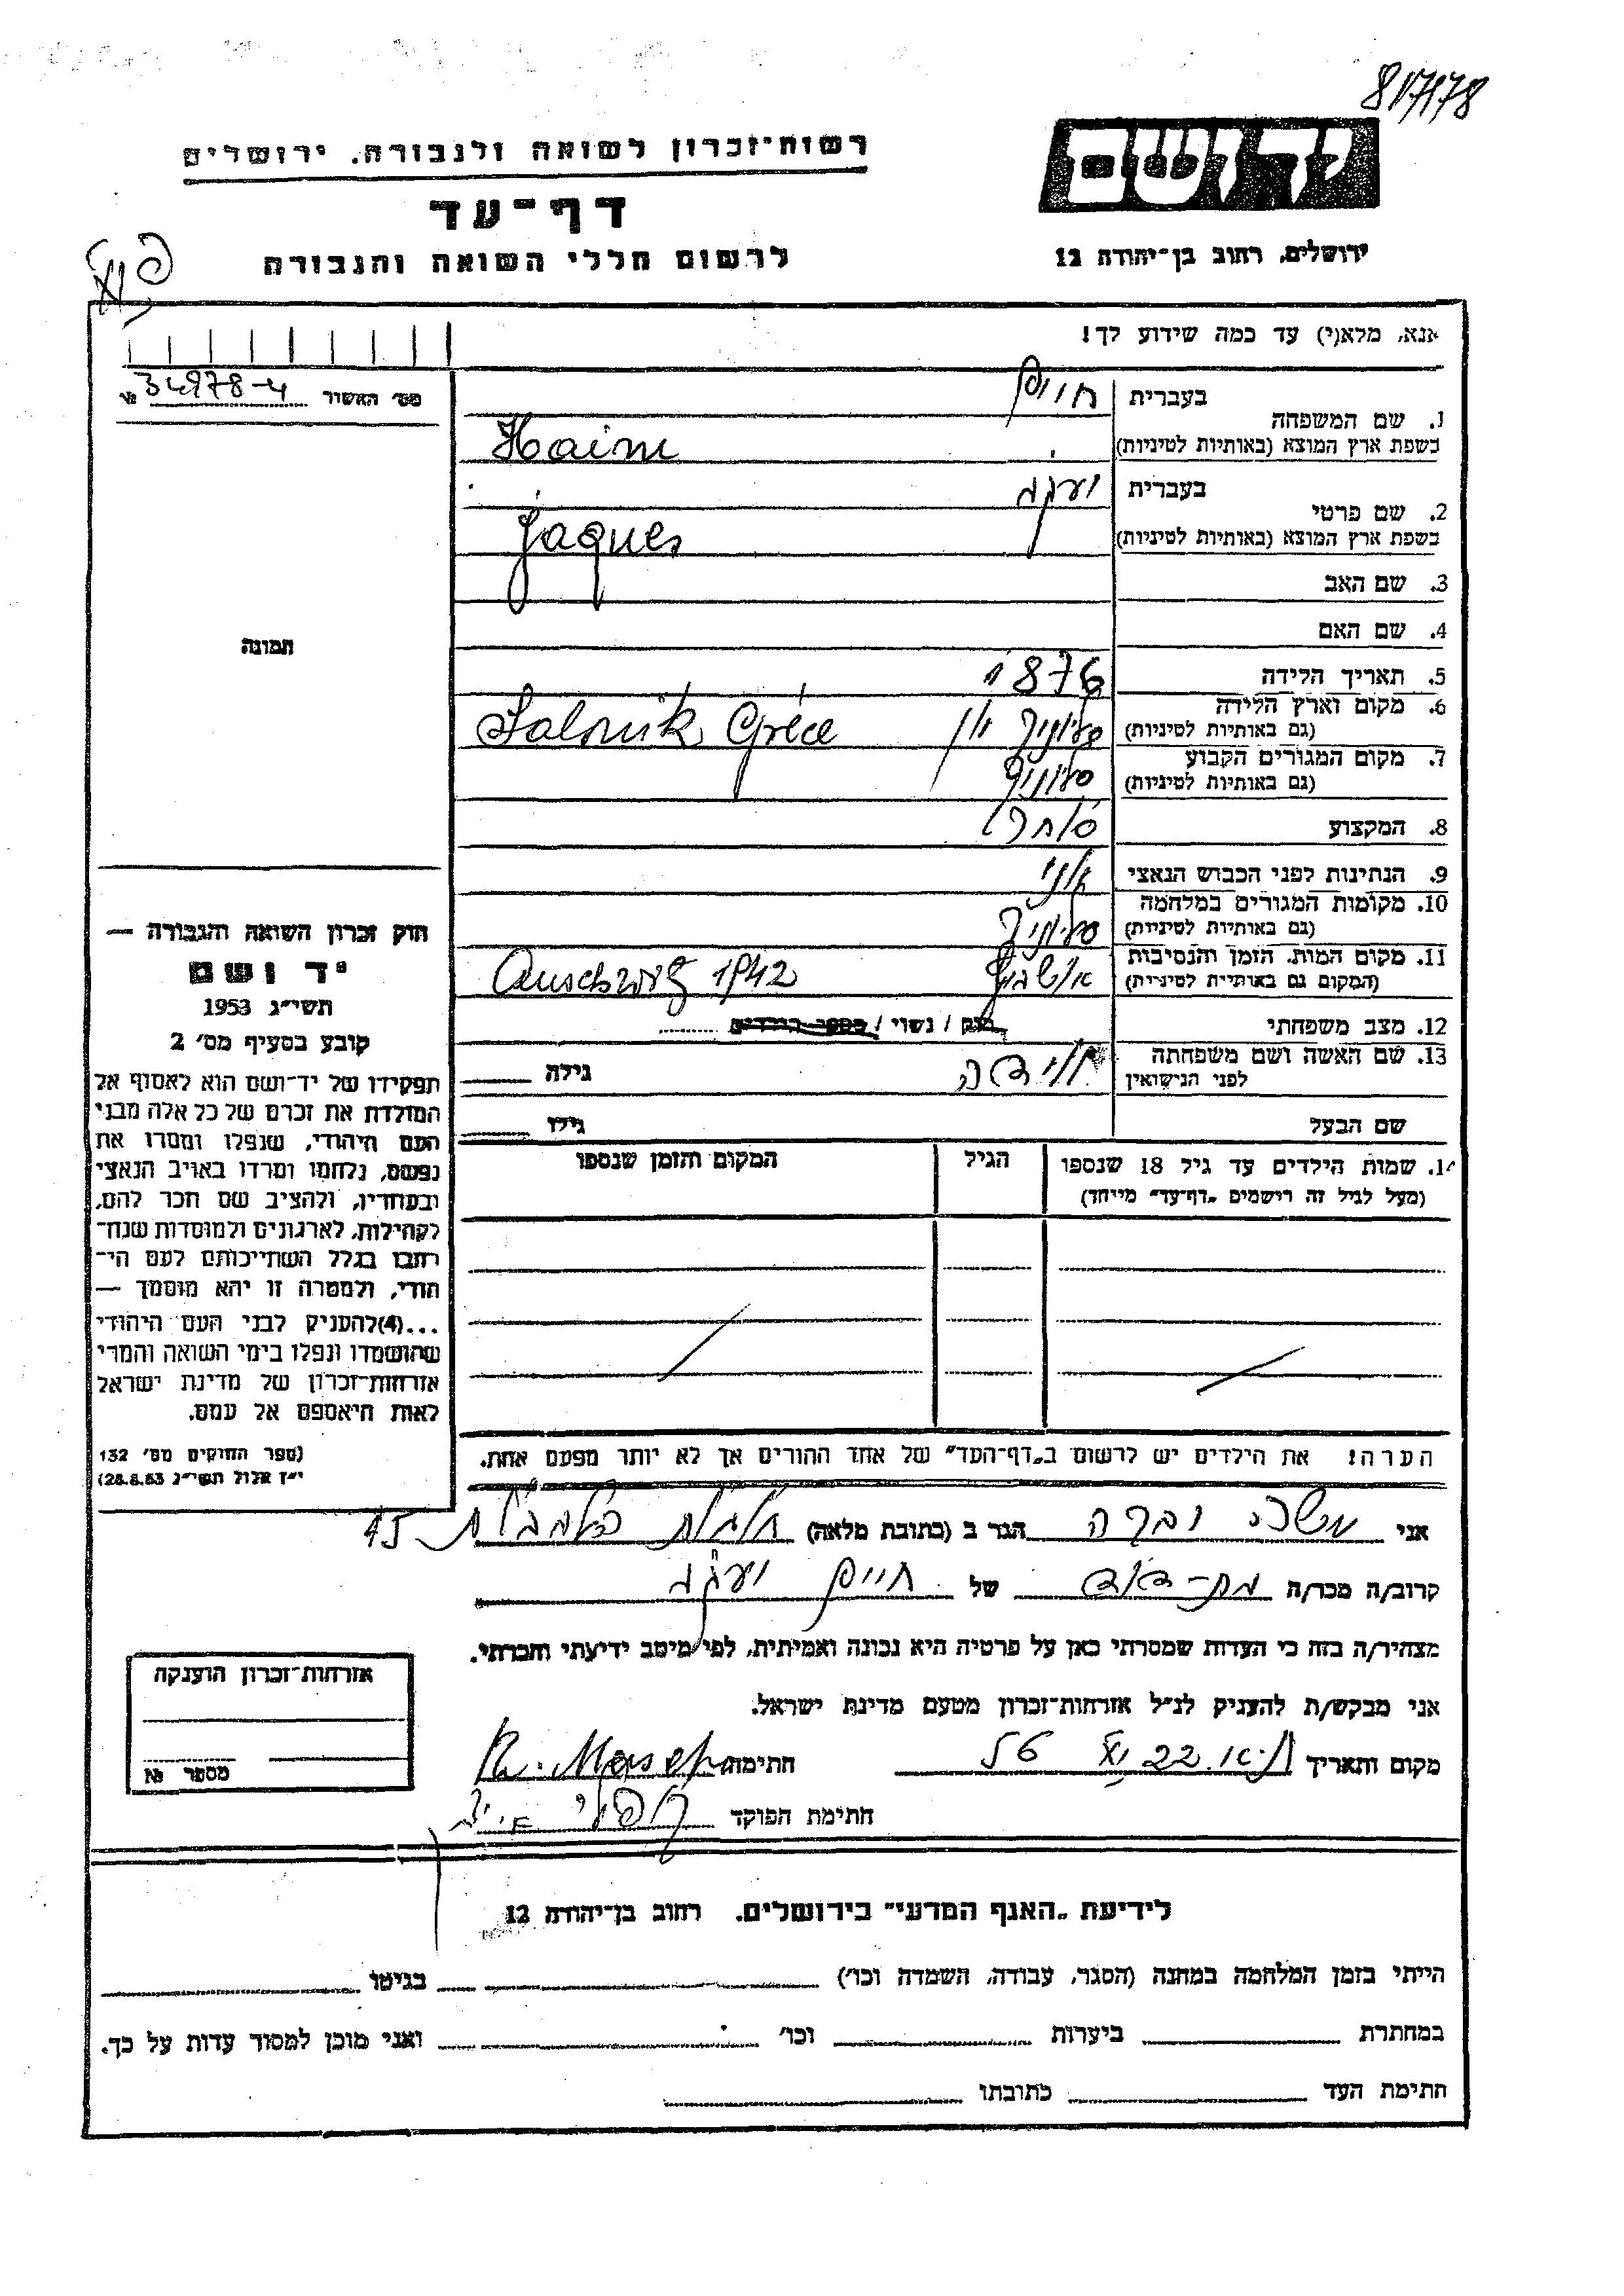 817178
רשות־זכרון לשואה ולגבורה. ירושלים
יד ושם
דף־עד
לרשום חללי השואה והגבורה
ירושלים, רחוב בן־יהודה 12
אנא, מלא(י) עד כמה שידוע לך!
מס׳ האשור 34978-4 №
1. שם המשפחה
בעברית חיים
בשפת ארץ המוצא (באותיות לטיניות) Haim
2. שם פרטי
בעברית יעקב
בשפת ארץ המוצא (באותיות לטיניות) Jaques
3. שם האב
4. שם האם
תמונה
5. תאריך הלידה 1876
6. מקום וארץ הלידה
(גם באותיות לטיניות) סלוניק יון Salonik Gréce
7. מקום המגורים הקבוע
(גם באותיות לטיניות) סלוניק
8. המקצוע סוחר
9. הנתינות לפני הכבוש הנאצי יוני
10. מקומות המגורים במלחמה
(גם באותיות לטיניות) סלוניק
11. מקום המות, הזמן והנסיבות
(המקום גם באותיות לטיניות) אושביץ Auschwitz 1942
12. מצב משפחתי רוק / נשוי / מספר הילדים
13. שם האשה ושם משפחתה
לפני הנישואין גילה
שם הבעל גילו
14. שמות הילדים עד גיל 18 שנספו הגיל המקום והזמן שנספו
(מעל לגיל זה רישמים „דף־עד” מייחד)
חוק זכרון השואה והגבורה —
יד ושם
תשי״ג 1953
קובע בסעיף מס׳ 2
תפקידו של יד־ושם הוא לאסוף אל
המולדת את זכרם של כל אלה מבני
העם היהודי, שנפלו ומסרו את
נפשם, נלחמו ומרדו באויב הנאצי
ובעוזריו, ולהציב שם וזכר להם,
לקהילות, לארגונים ולמוסדות שנח־
רבו בגלל השתייכותם לעם הי־
הודי, ולמטרה זו יהא מוסמך —
...(4) להעניק לבני העם היהודי
שהושמדו ונפלו בימי השואה והמרי
אזרחות־זכרון של מדינת ישראל
לאות היאספם אל עמם.
(ספר החוקים מס׳ 132
י״ז אלול תשי״ג 28.8.53)
הערה! את הילדים יש לרשום ב„דף־העד” של אחד ההורים אך לא יותר מפעם אחת.
אני רבקה הגר ב (כתובת מלאה) 45
קרוב/ה מכר/ה בת-דוד של חיים יעקב
מצהיר/ה בזה כי העדות שמסרתי כאן על פרטיה היא נכונה ואמיתית, לפי מיטב ידיעתי והכרתי.
אני מבקש/ת להעניק לנ״ל אזרחות־זכרון מטעם מדינת ישראל.
מקום ותאריך ת״א. 22 חתימה
חתימת הפוקד
אזרחות־זכרון הוענקה
מספר №
לידיעת „האגף המדעי” בירושלים. רחוב בן־יהודה 12
הייתי בזמן המלחמה במחנה (הסגר, עבודה, השמדה וכו׳) בגיטו
במחתרת ביערות וכו׳ ואני מוכן למסור עדות על כך.
חתימת העד כתובתו